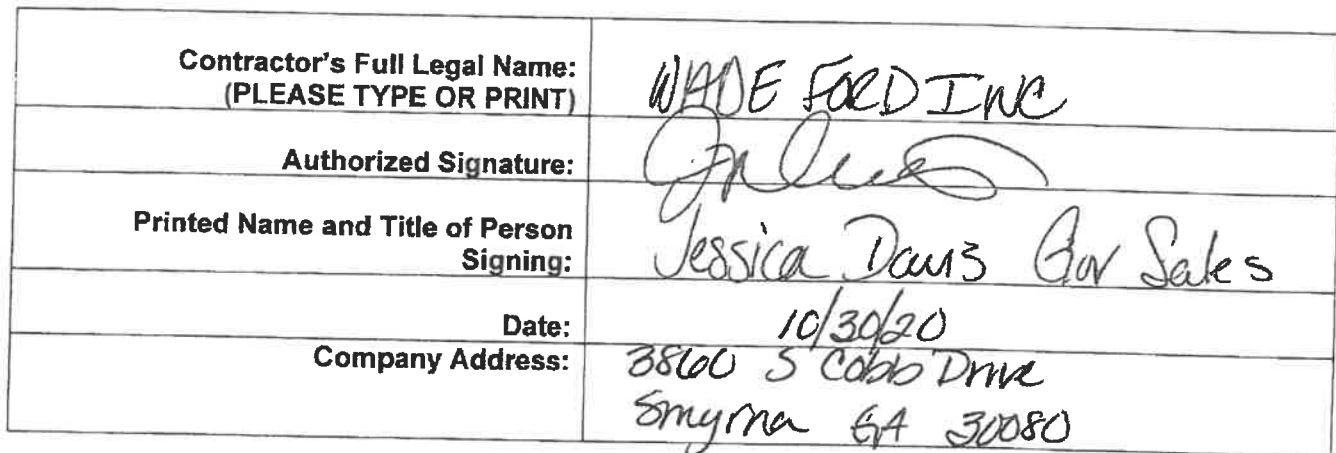 Contractor's Full Legal Name:
(PLEASE TYPE OR PRINT)
WADE FORD INC
Authorized Signature:
Printed Name and Title of Person
Signing:
Jessica Davis Gov Sales
Date:
10/30/20
Company Address:
3860 S Cobb Drive
Smyrna GA 30080